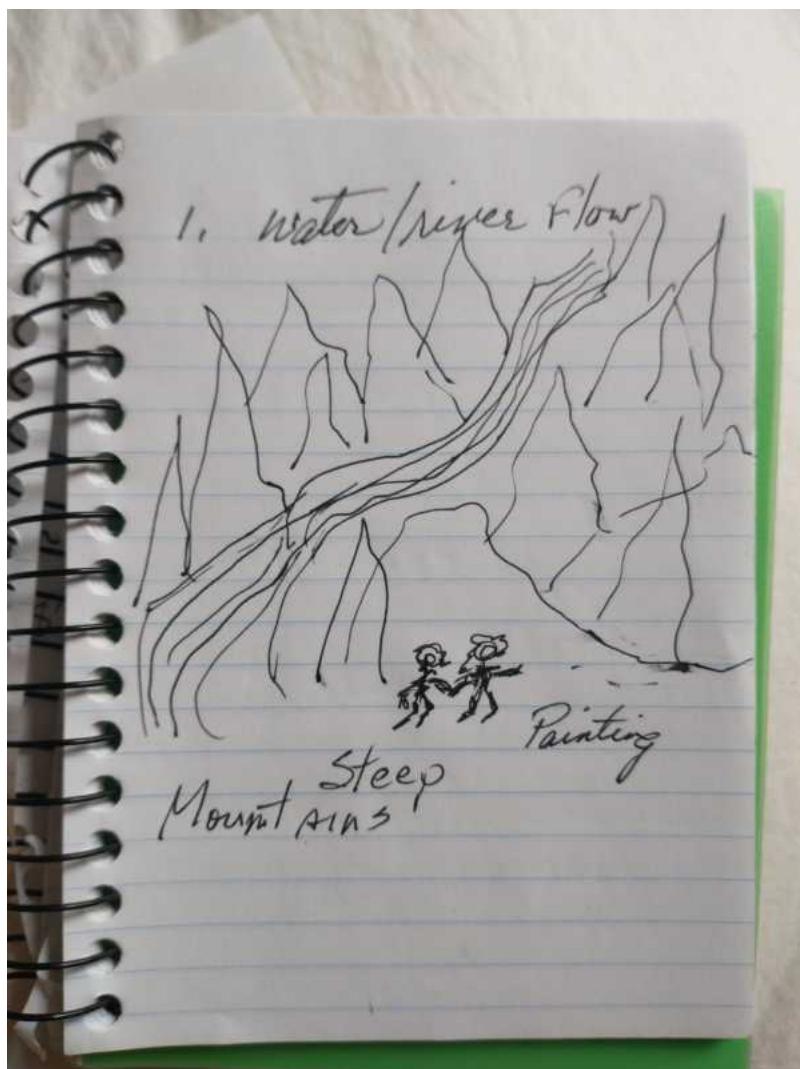 1. water/river Flow
Painting
Steep
Mountains